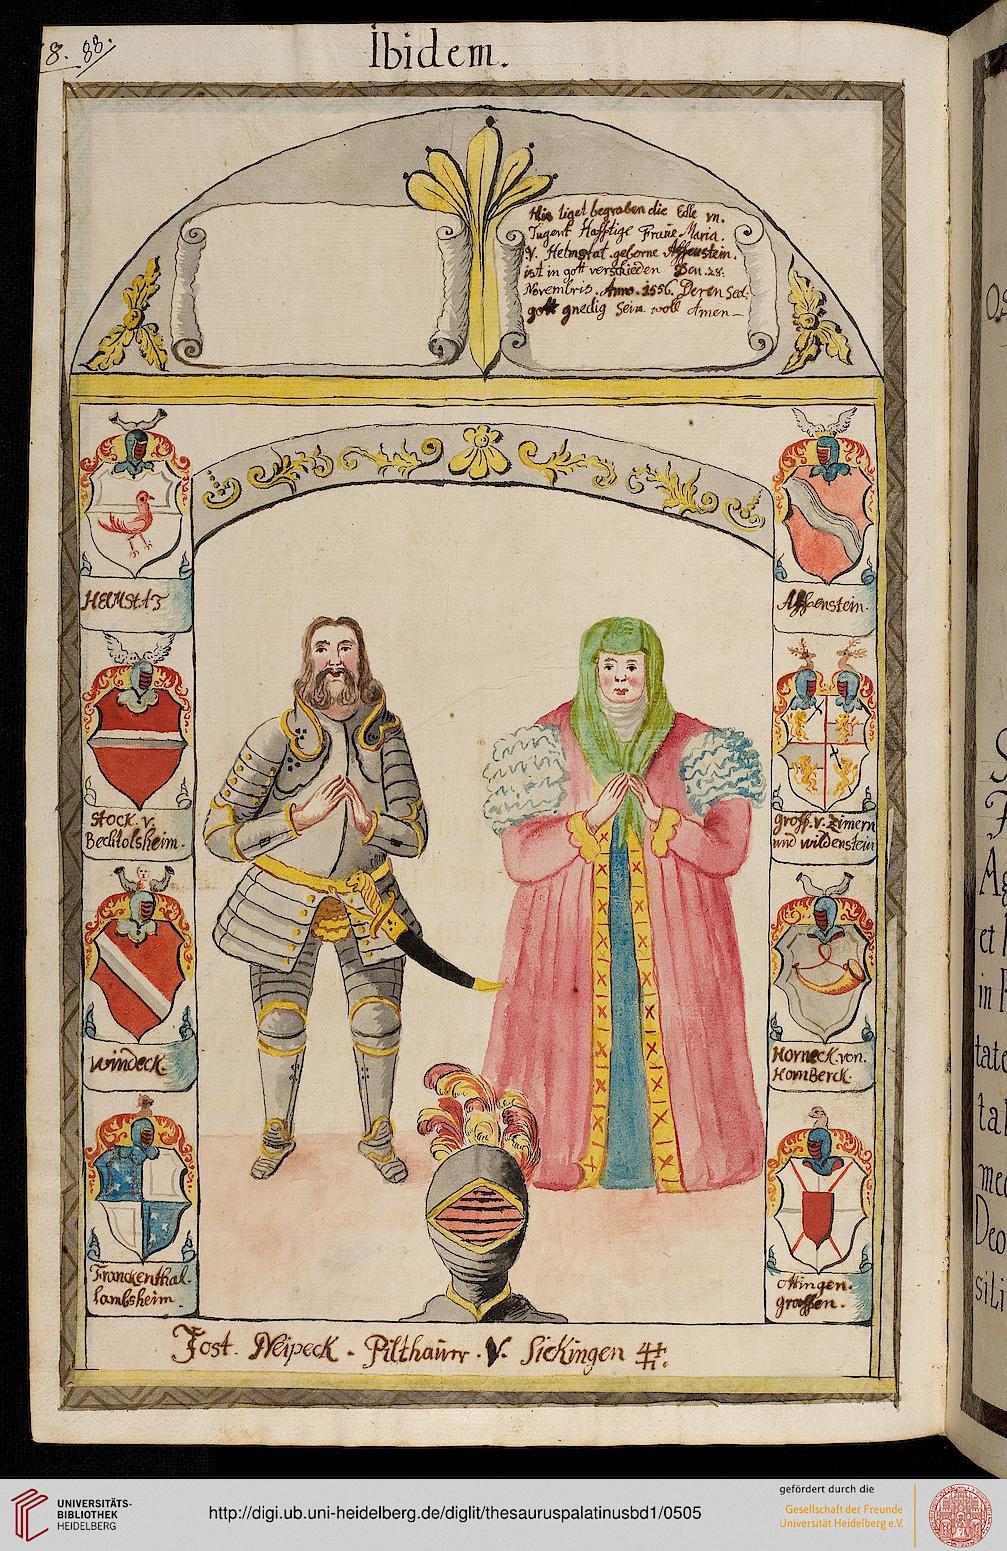 8. 88.
Ibidem.
Hie liget begraben die Edle vn.
Tugent Hafftige Fraue Maria.
V. Helmstat geborne Affenstein.
ist in gott verschieden Den 28.
Novembris. Anno. 1556. Deren Seel:
gott gnedig Sein woll Amen
HELMStAT
Affenstein.
Stock. v.
Bechtolsheim.
groff. v. Zimern
und wildenstein
windeck.
Horneck von.
HornBerck.
Franckenthal.
Lambsheim.
ottingen.
graffen.
Jost. Neipeck. Pilthauer. V. Sickingen
UNIVERSITÄTS-
BIBLIOTHEK
HEIDELBERG
http://digi.ub.uni-heidelberg.de/diglit/thesauruspalatinusbd1/0505
gefördert durch die
Gesellschaft der Freunde
Universität Heidelberg e.V.